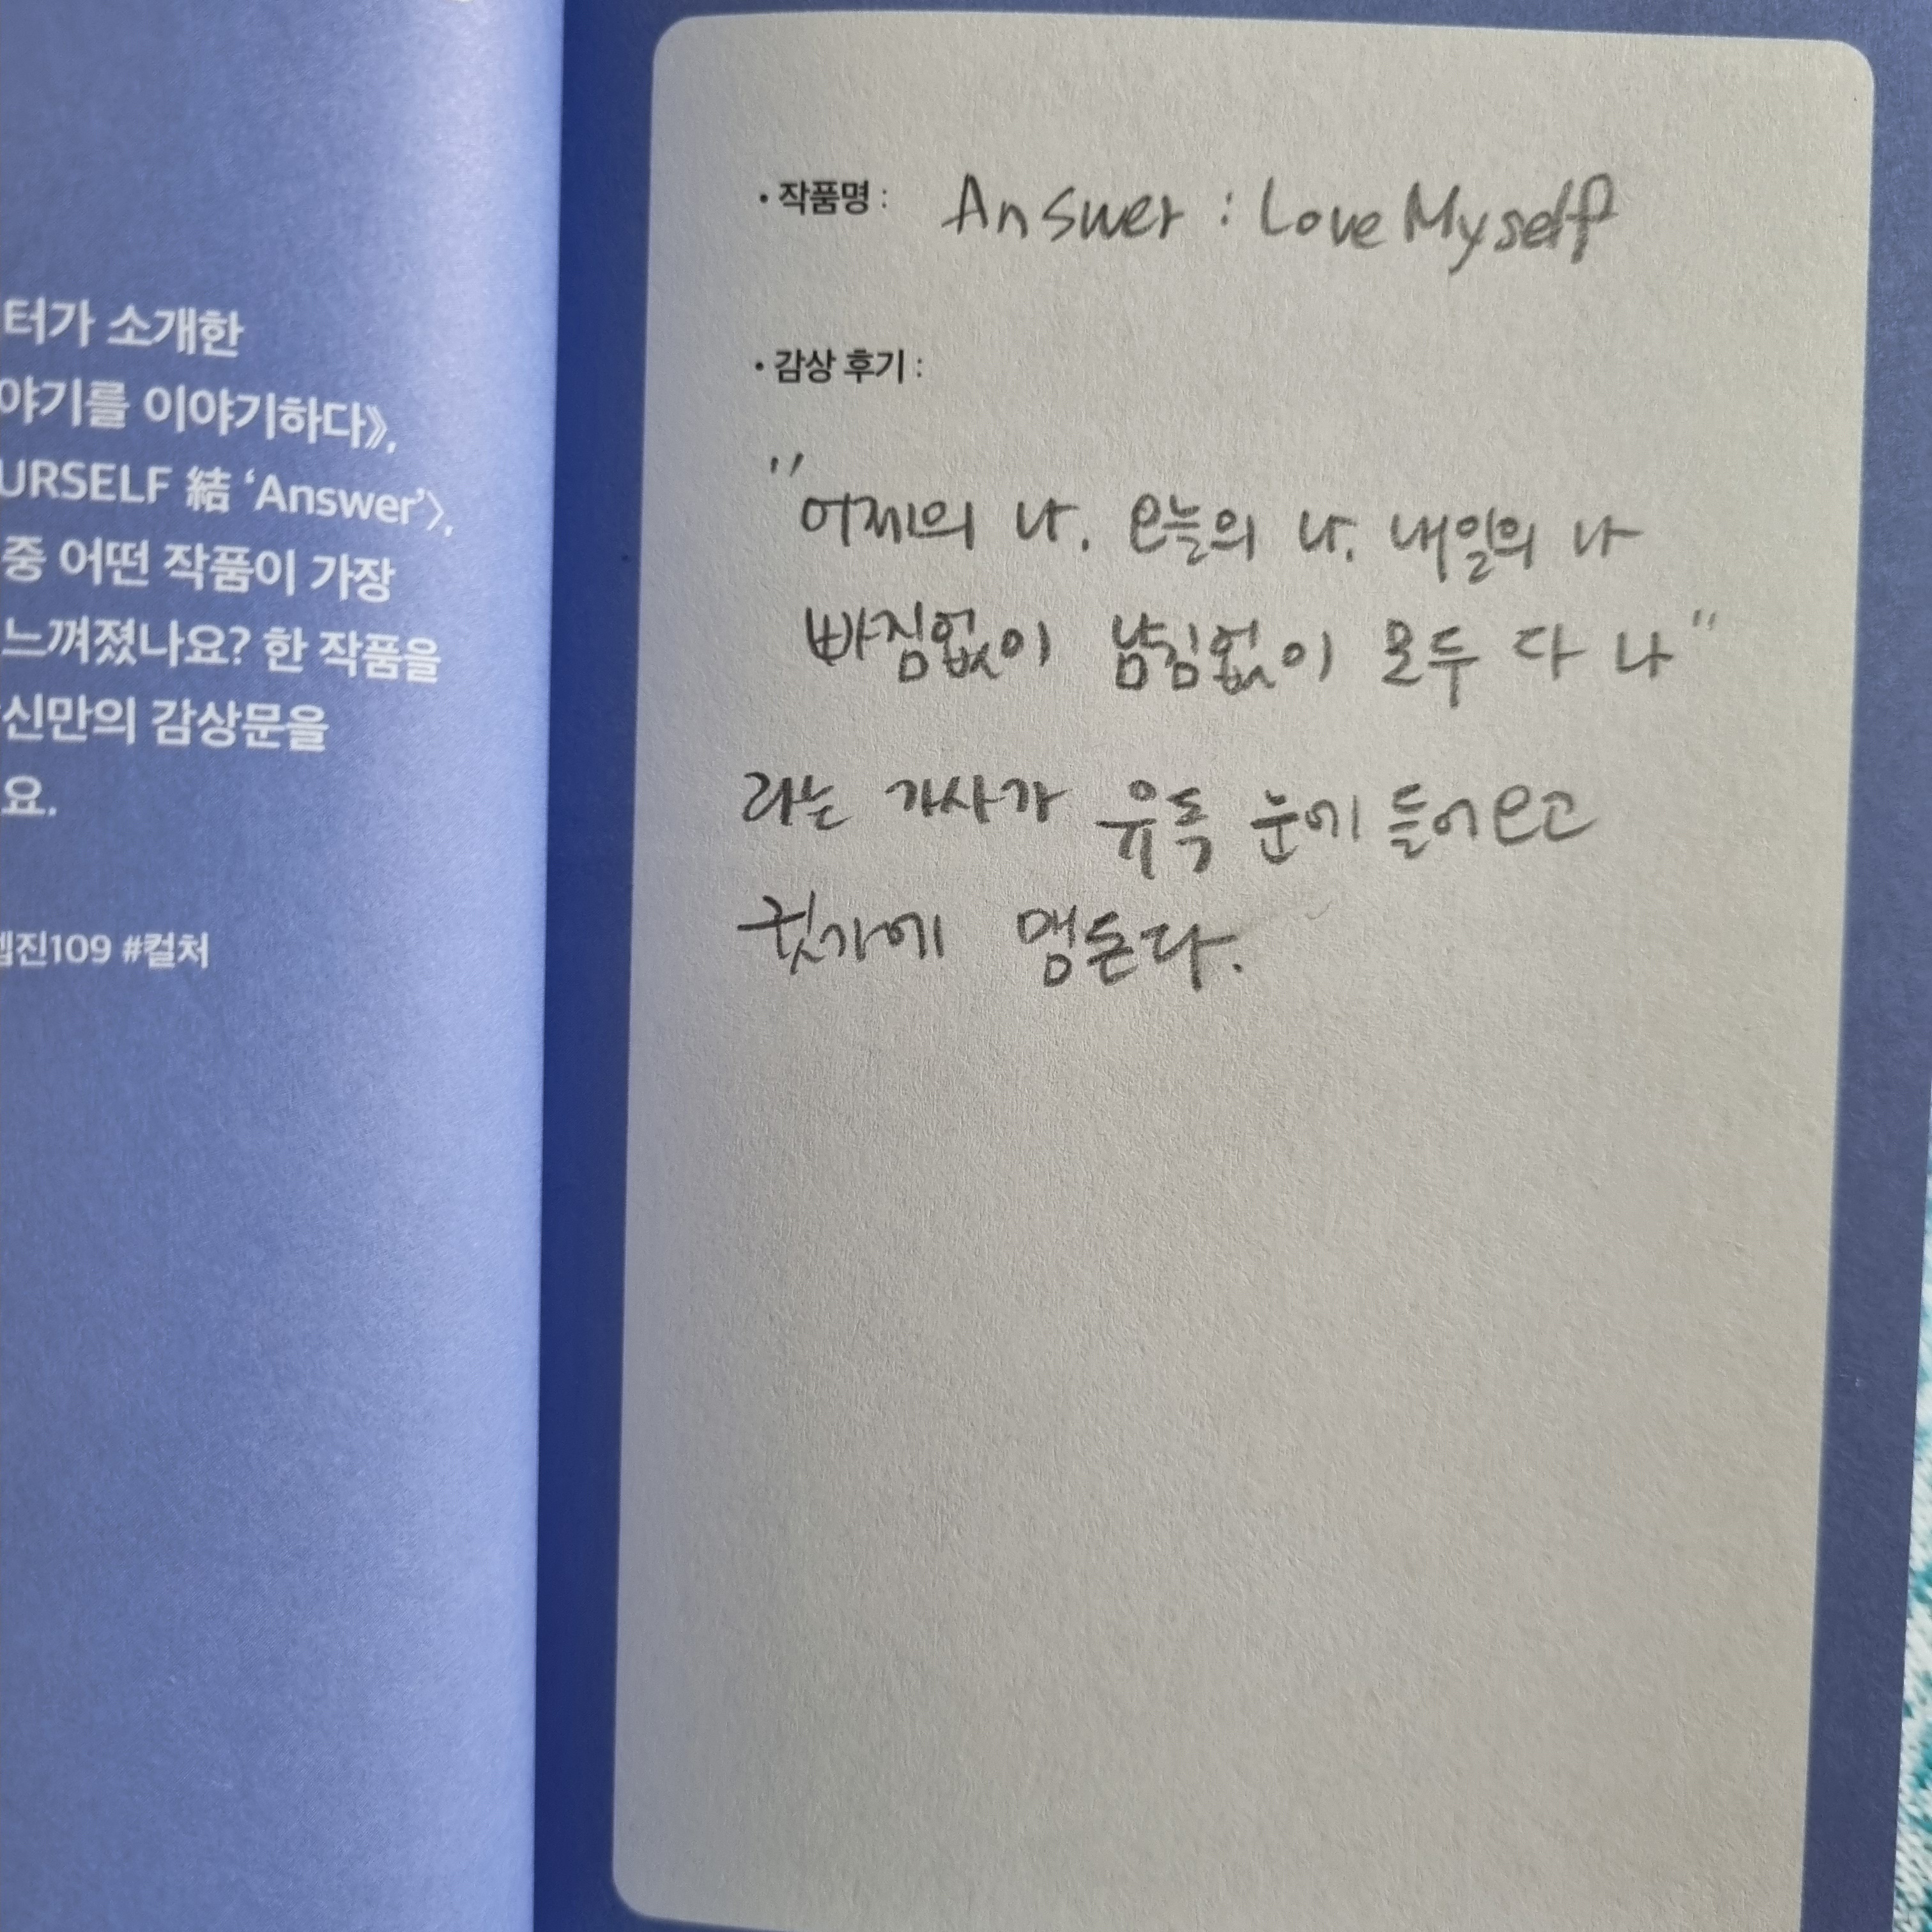 터가 소개한
야기를 이야기하다》,
URSELF 結 ‘Answer’〉,
중 어떤 작품이 가장
느껴졌나요? 한 작품을
신만의 감상문을
요.
진109 #컬처
• 작품명 : Answer : Love Myself
• 감상 후기 :
"어제의 나. 오늘의 나. 내일의 나
빠짐없이 남김없이 모두 다 나"
라는 가사가 유독 눈에 들어오고
귓가에 맹돈다.